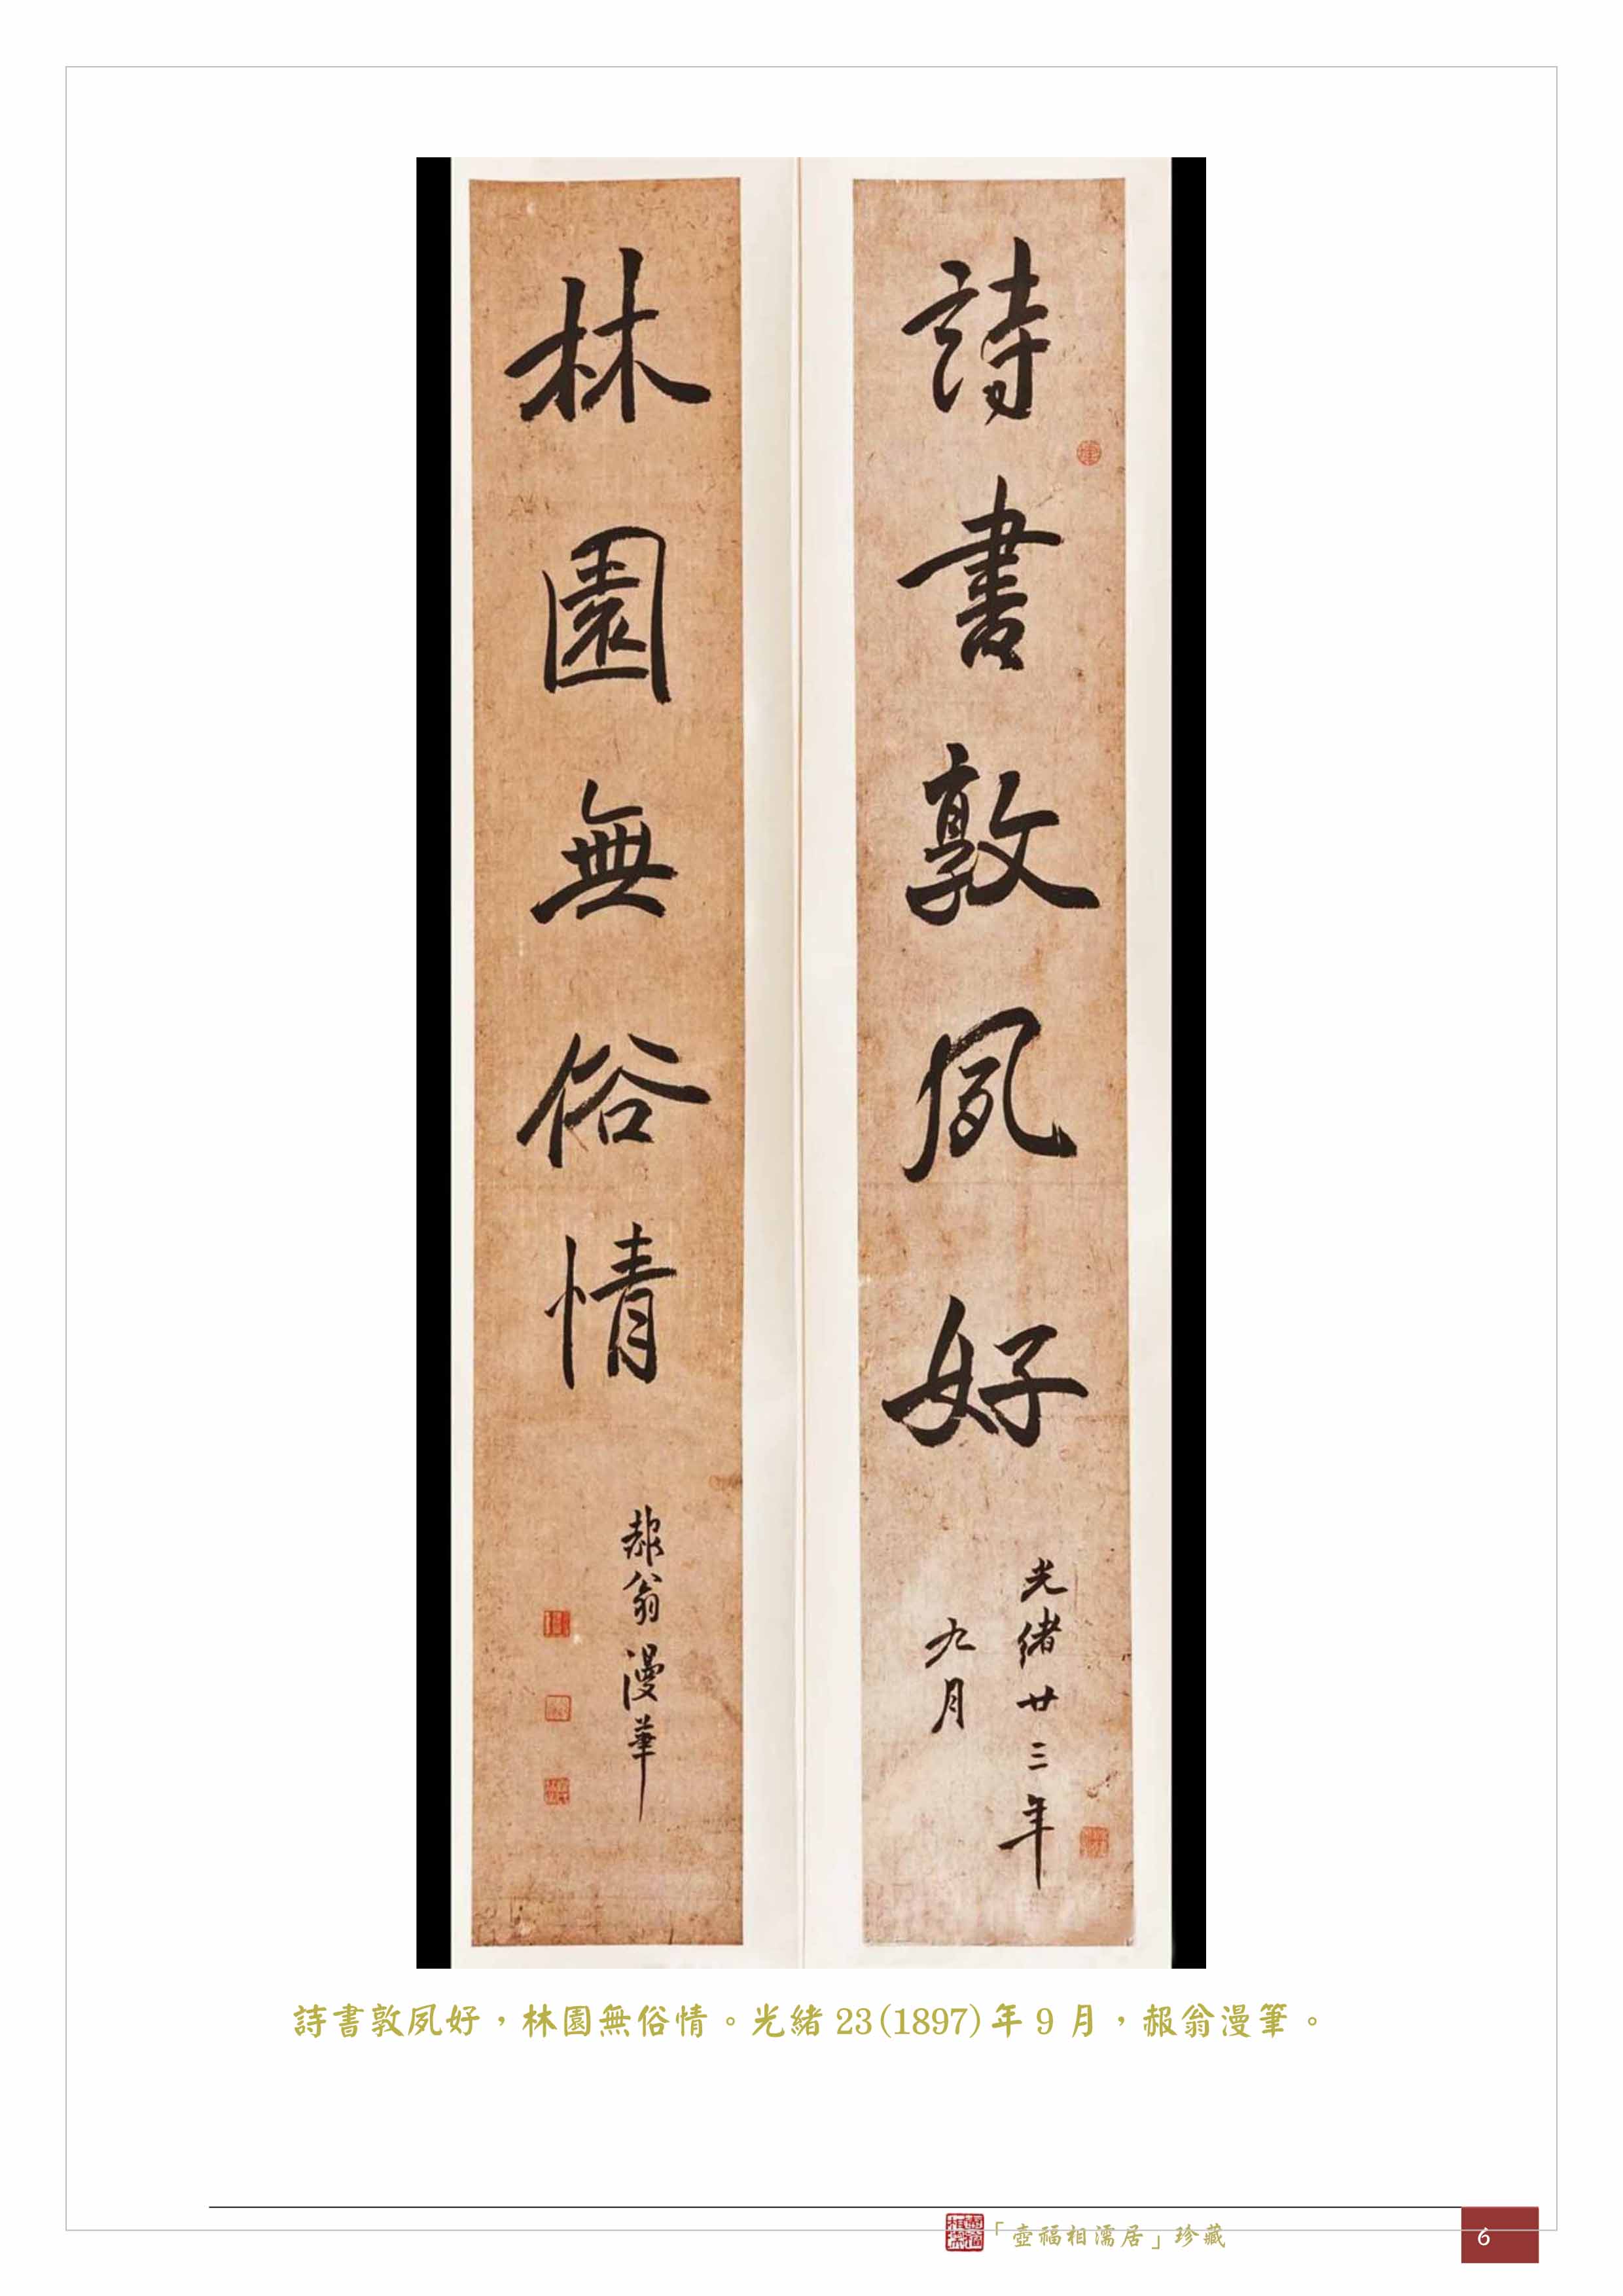 詩書敦夙好
光緒廿三年
九月
林園無俗情
赧翁漫筆
詩書敦夙好，林園無俗情。光緒23(1897)年9月，赧翁漫筆。
「壺福相濡居」珍藏
6